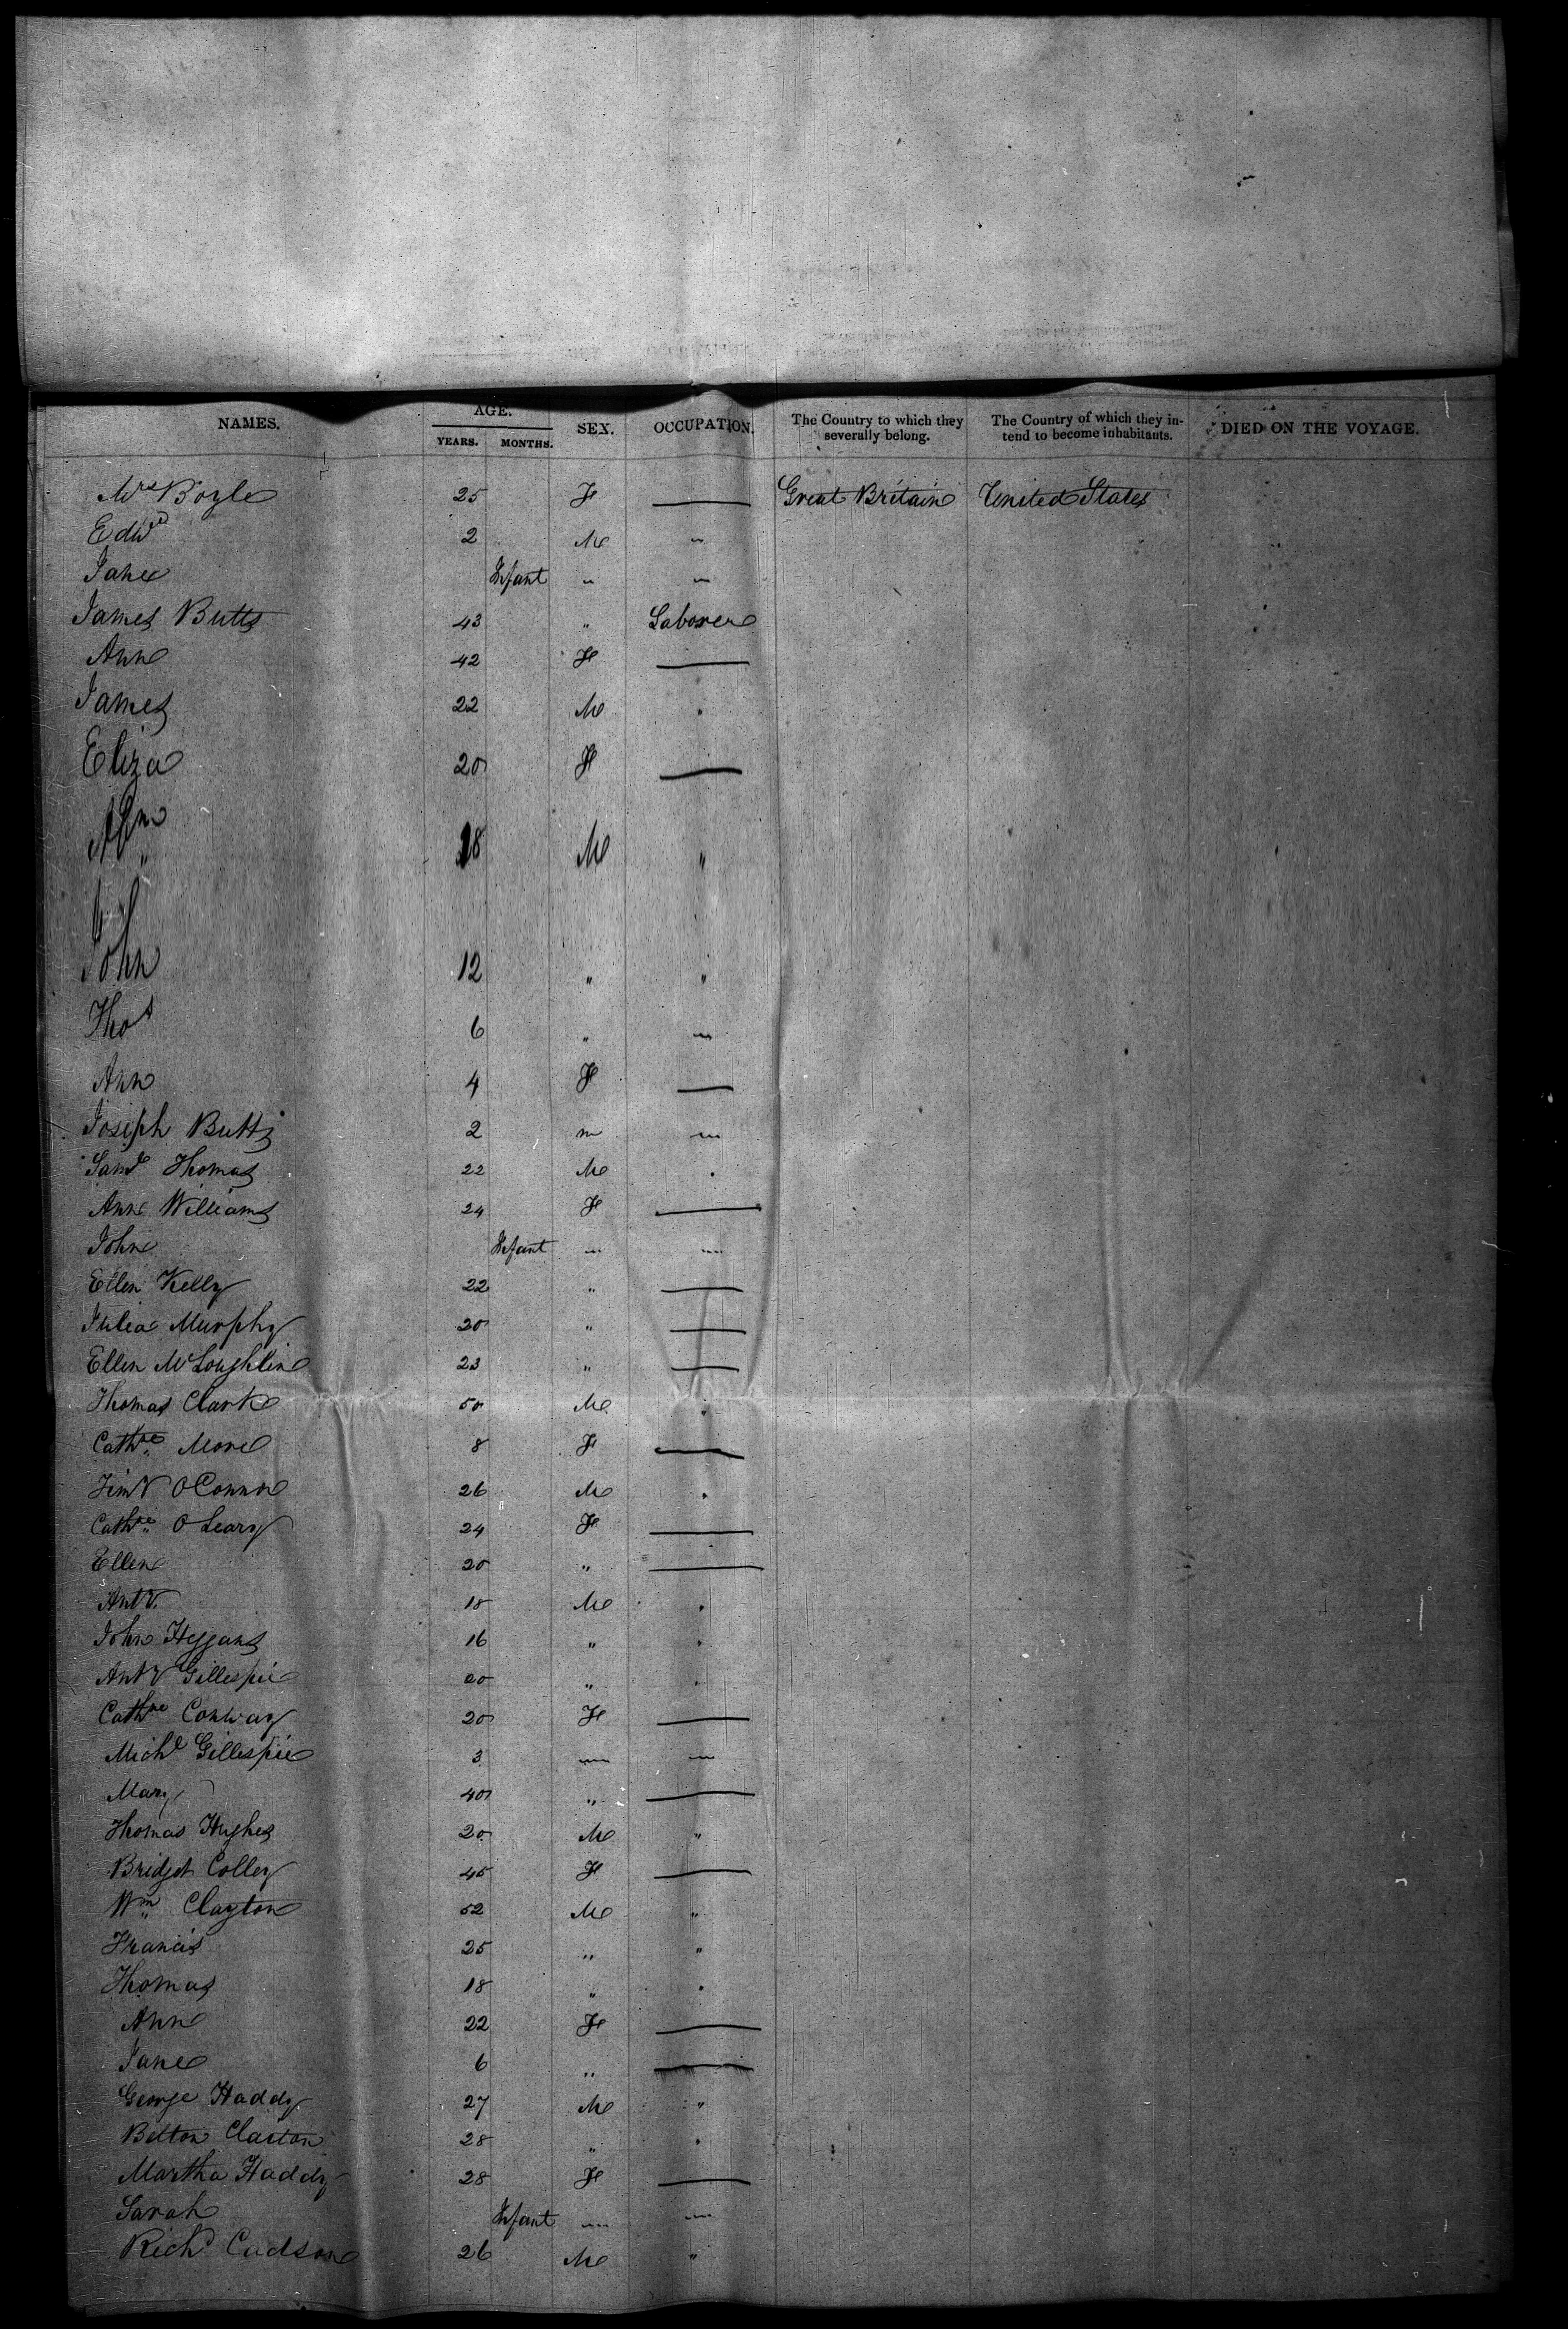 NAMES. AGE. YEARS. MONTHS. SEX. OCCUPATION. The Country to which they severally belong. The Country of which they intend to become inhabitants. DIED ON THE VOYAGE.
Mrs Boyle 25 F — Great Britain United States
Edwd 2 M "
Jane Infant " "
James Butts 43 " Laborer
Ann 42 F —
James 22 M "
Eliza 20 F —
Wm 18 M "
John 12 " "
Thos 6 " "
Ann 4 F —
Joseph Butts 2 " "
Saml Thomas 22 M "
Ann Williams 24 F —
John Infant " "
Ellen Kelly 22 " —
Julia Murphy 20 " —
Ellen McLoughlin 23 " —
Thomas Clark 50 M "
Cathne More 8 F —
Timy O Connor 26 M "
Cathne O Leary 24 F —
Ellen 20 " —
Anty 18 M "
John Heggans 16 " "
Anty Gillespie 20 " "
Cathne Conway 20 F —
Michl Gillespie 3 " "
Mary 40 " —
Thomas Hughes 20 M "
Bridget Colley 45 F —
Wm Clayton 52 M "
Francis 25 " "
Thomas 18 " "
Ann 22 F —
Jane 6 " —
George Haddy 27 M "
Belton Claxton 28 " "
Martha Haddy 28 F —
Sarah Infant " "
Richd Cadson 26 M "